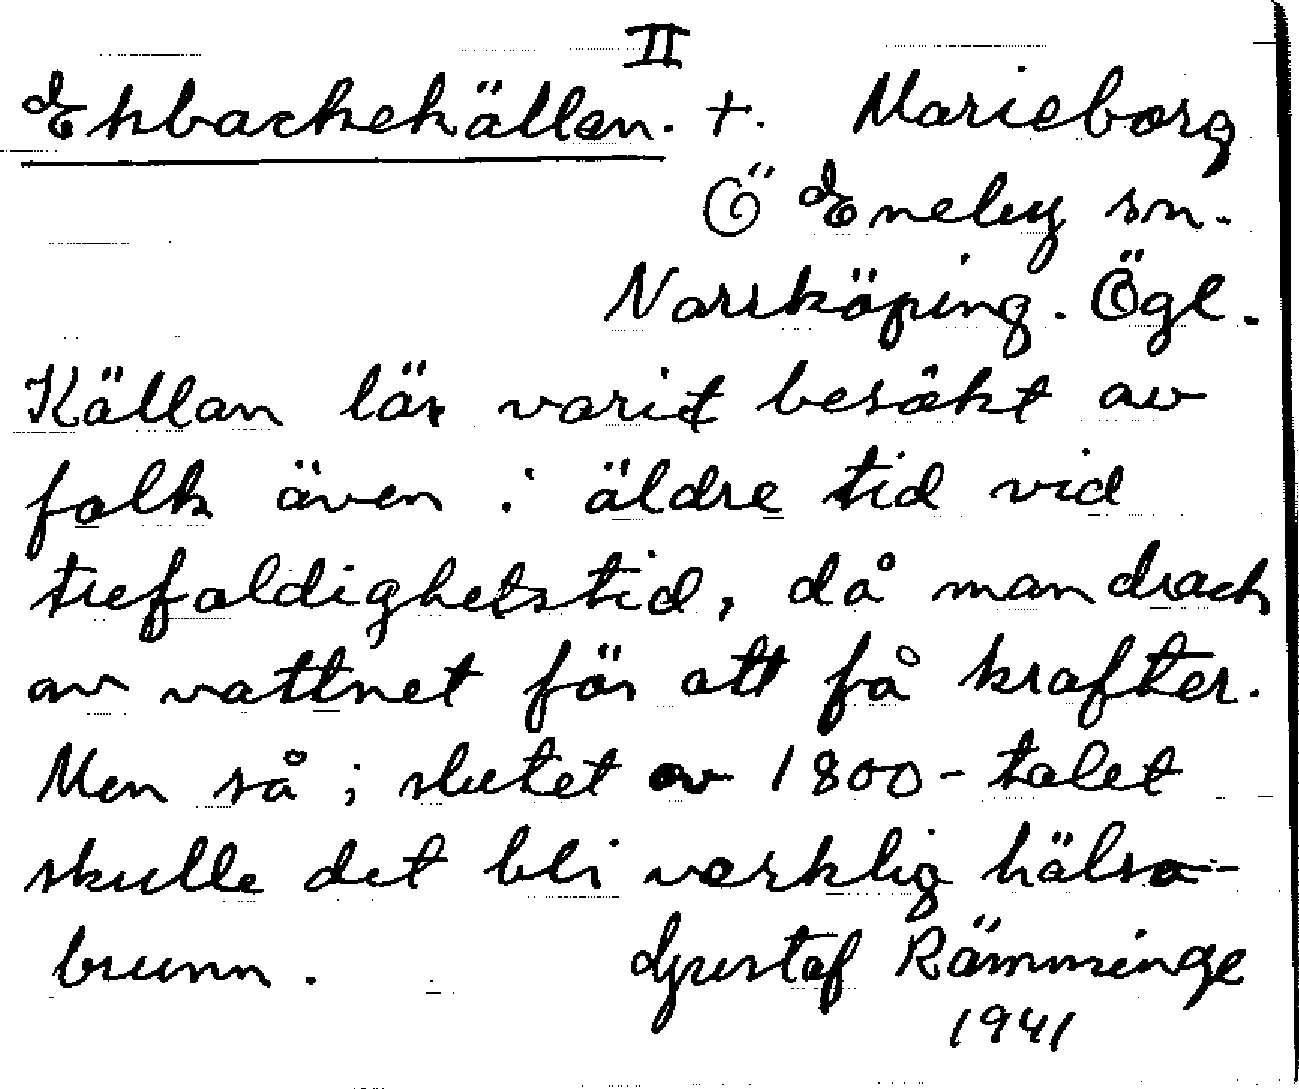 II
Ekbackekällan. +. Marieborg
Ö Eneby sn.
Norrköping. Ögl.
Källan lär varit besökt av
folk även i äldre tid vid
trefaldighetstid, då man drack
av vattnet för att få krafter.
Men så i slutet av 1800-talet
skulle det bli verklig hälso-
brunn. Gustaf Rämminge
1941